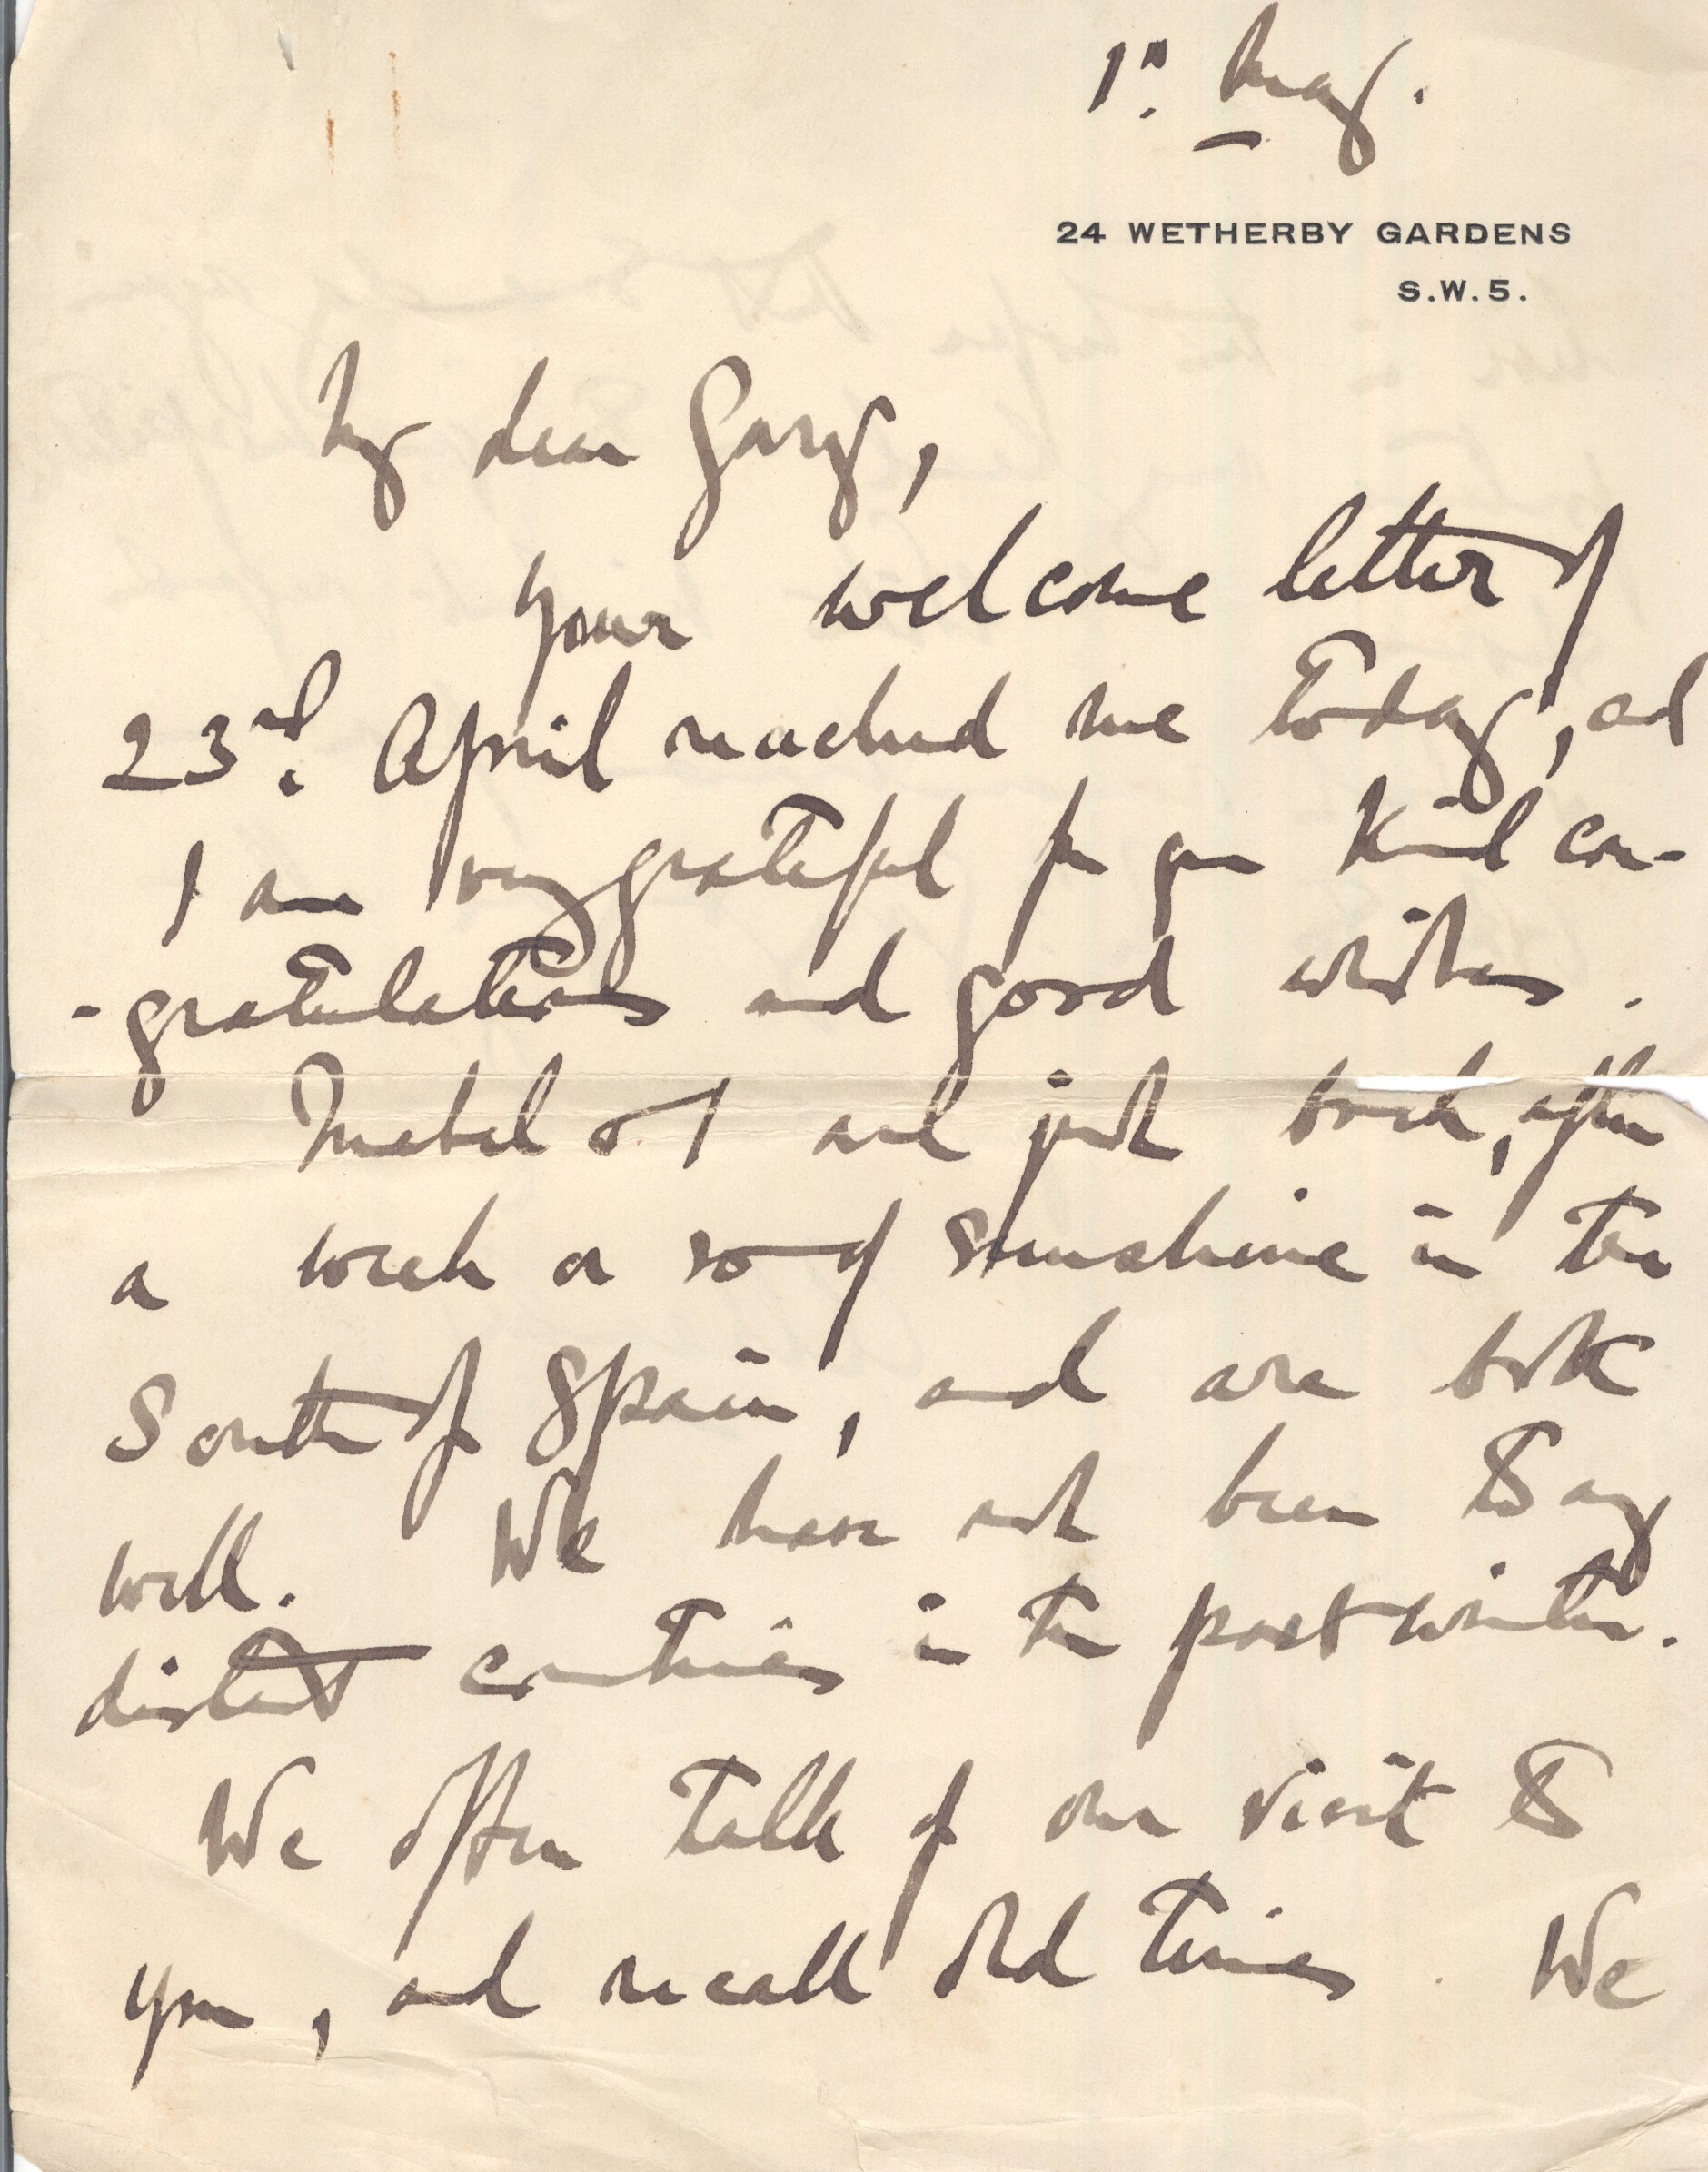 1st. May.
24 WETHERBY GARDENS
S.W.5.
My dear Gary,
Your welcome letter of
23rd. April reached me today, and
I am very grateful for your kind con-
-gratulations and good wishes.
Mabel & I are just back, after
a week or so of sunshine in the
South of Spain, and are both
well. We have not been to any
distant countries in the past winter.
We often talk of our visit to
you, and recall old times. We